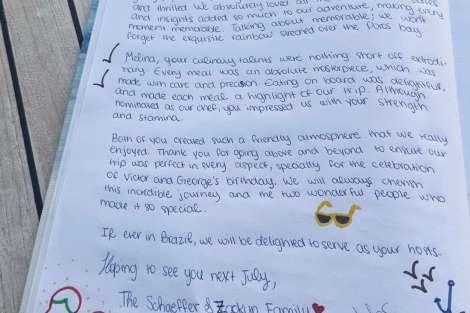 and thrilled. We absolutely loved all
and insights added so much to our adventure, making every
moment memorable. Talking about memorable; we won't
forget the exquisite rainbow streaked over the Poros bay.
Melina, your culinary talents were nothing short off extraordi-
nary. Every meal was an absolute masterpiece, which was
made with care and precision. Eating on board was delightful,
and made each meal a highlight of our trip. Although
nominated as our chef, you impressed us with your strength
and stamina.
Both of you created such a friendly atmosphere that we really
enjoyed. Thank you for going above and beyond to ensure our
trip was perfect in every aspect, specially for the celebration
of Victor and George's birthday. We will always cherish
this incredible journey and the two wonderful people who
made it so special.
If ever in Brazil, we will be delighted to serve as your hosts.
Hoping to see you next July,
The Schaeffer & Family